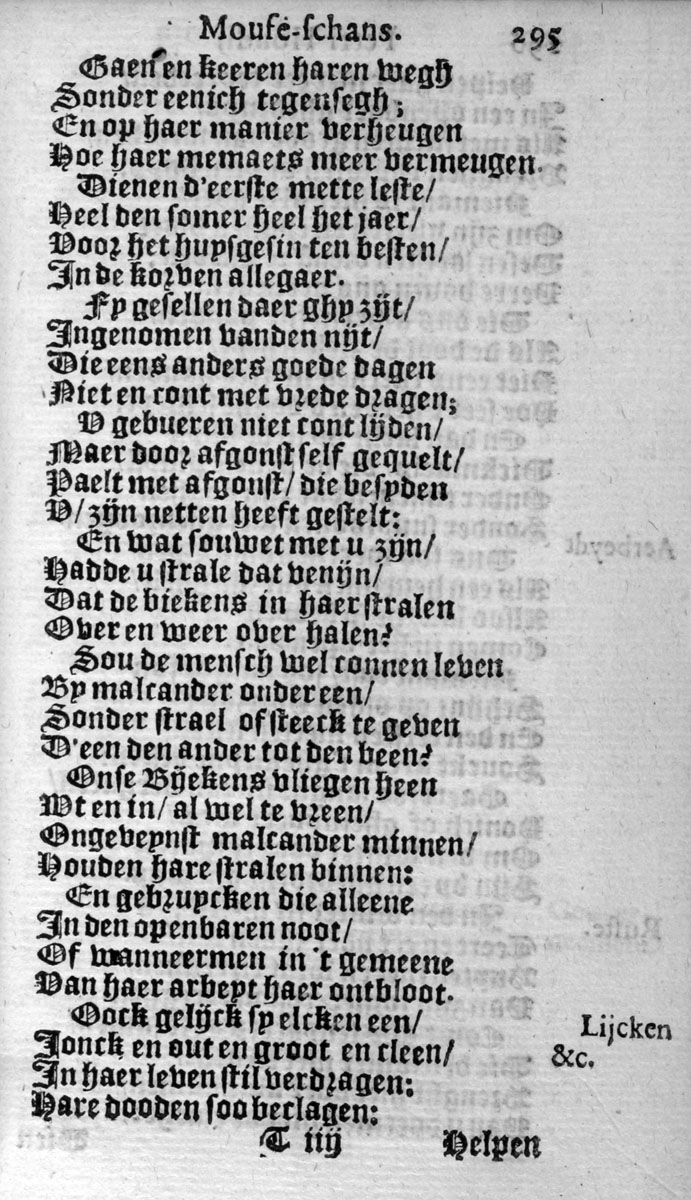 Mouse-schans. 295
Gaen en keeren haren wegh
Sonder eenich tegensegh;
En op haer manier verheugen
Hoe haer memaets meer vermeugen.
Dienen d'eerste mette leste/
Heel den somer heel het jaer/
Voor het huysgesin ten besten/
In de korven allegaer.
Fy gesellen daer ghy zijt/
Ingenomen vanden nijt/
Die eens anders goede dagen
Niet en cont met vrede dragen;
V gebueren niet cont lijden/
Maer door afgonst self gequelt/
Paelt met afgonst/ die besyden
V/ zijn netten heeft gestelt:
En wat souwet met u zijn/
Hadde u strale dat venijn/
Dat de biekens in haer stralen
Over en weer over halen?
Sou de mensch wel connen leven
By malcander onder een/
Sonder strael of steeck te geven
D'een den ander tot den been?
Onse Bijekens vliegen heen
Wt en in/ al wel te vreen/
Ongeveynst malcander minnen/
Houden hare stralen binnen:
En gebruycken die alleene
In den openbaren noot/
Of wanneermen in 't gemeene
Van haer arbeyt haer ontbloot.
Oock gelijck sy elcken een/
Lijcken
Jonck en out en groot en cleen/
&c.
In haer leven stil verdragen:
Hare dooden soo beclagen:
T iiij Helpen